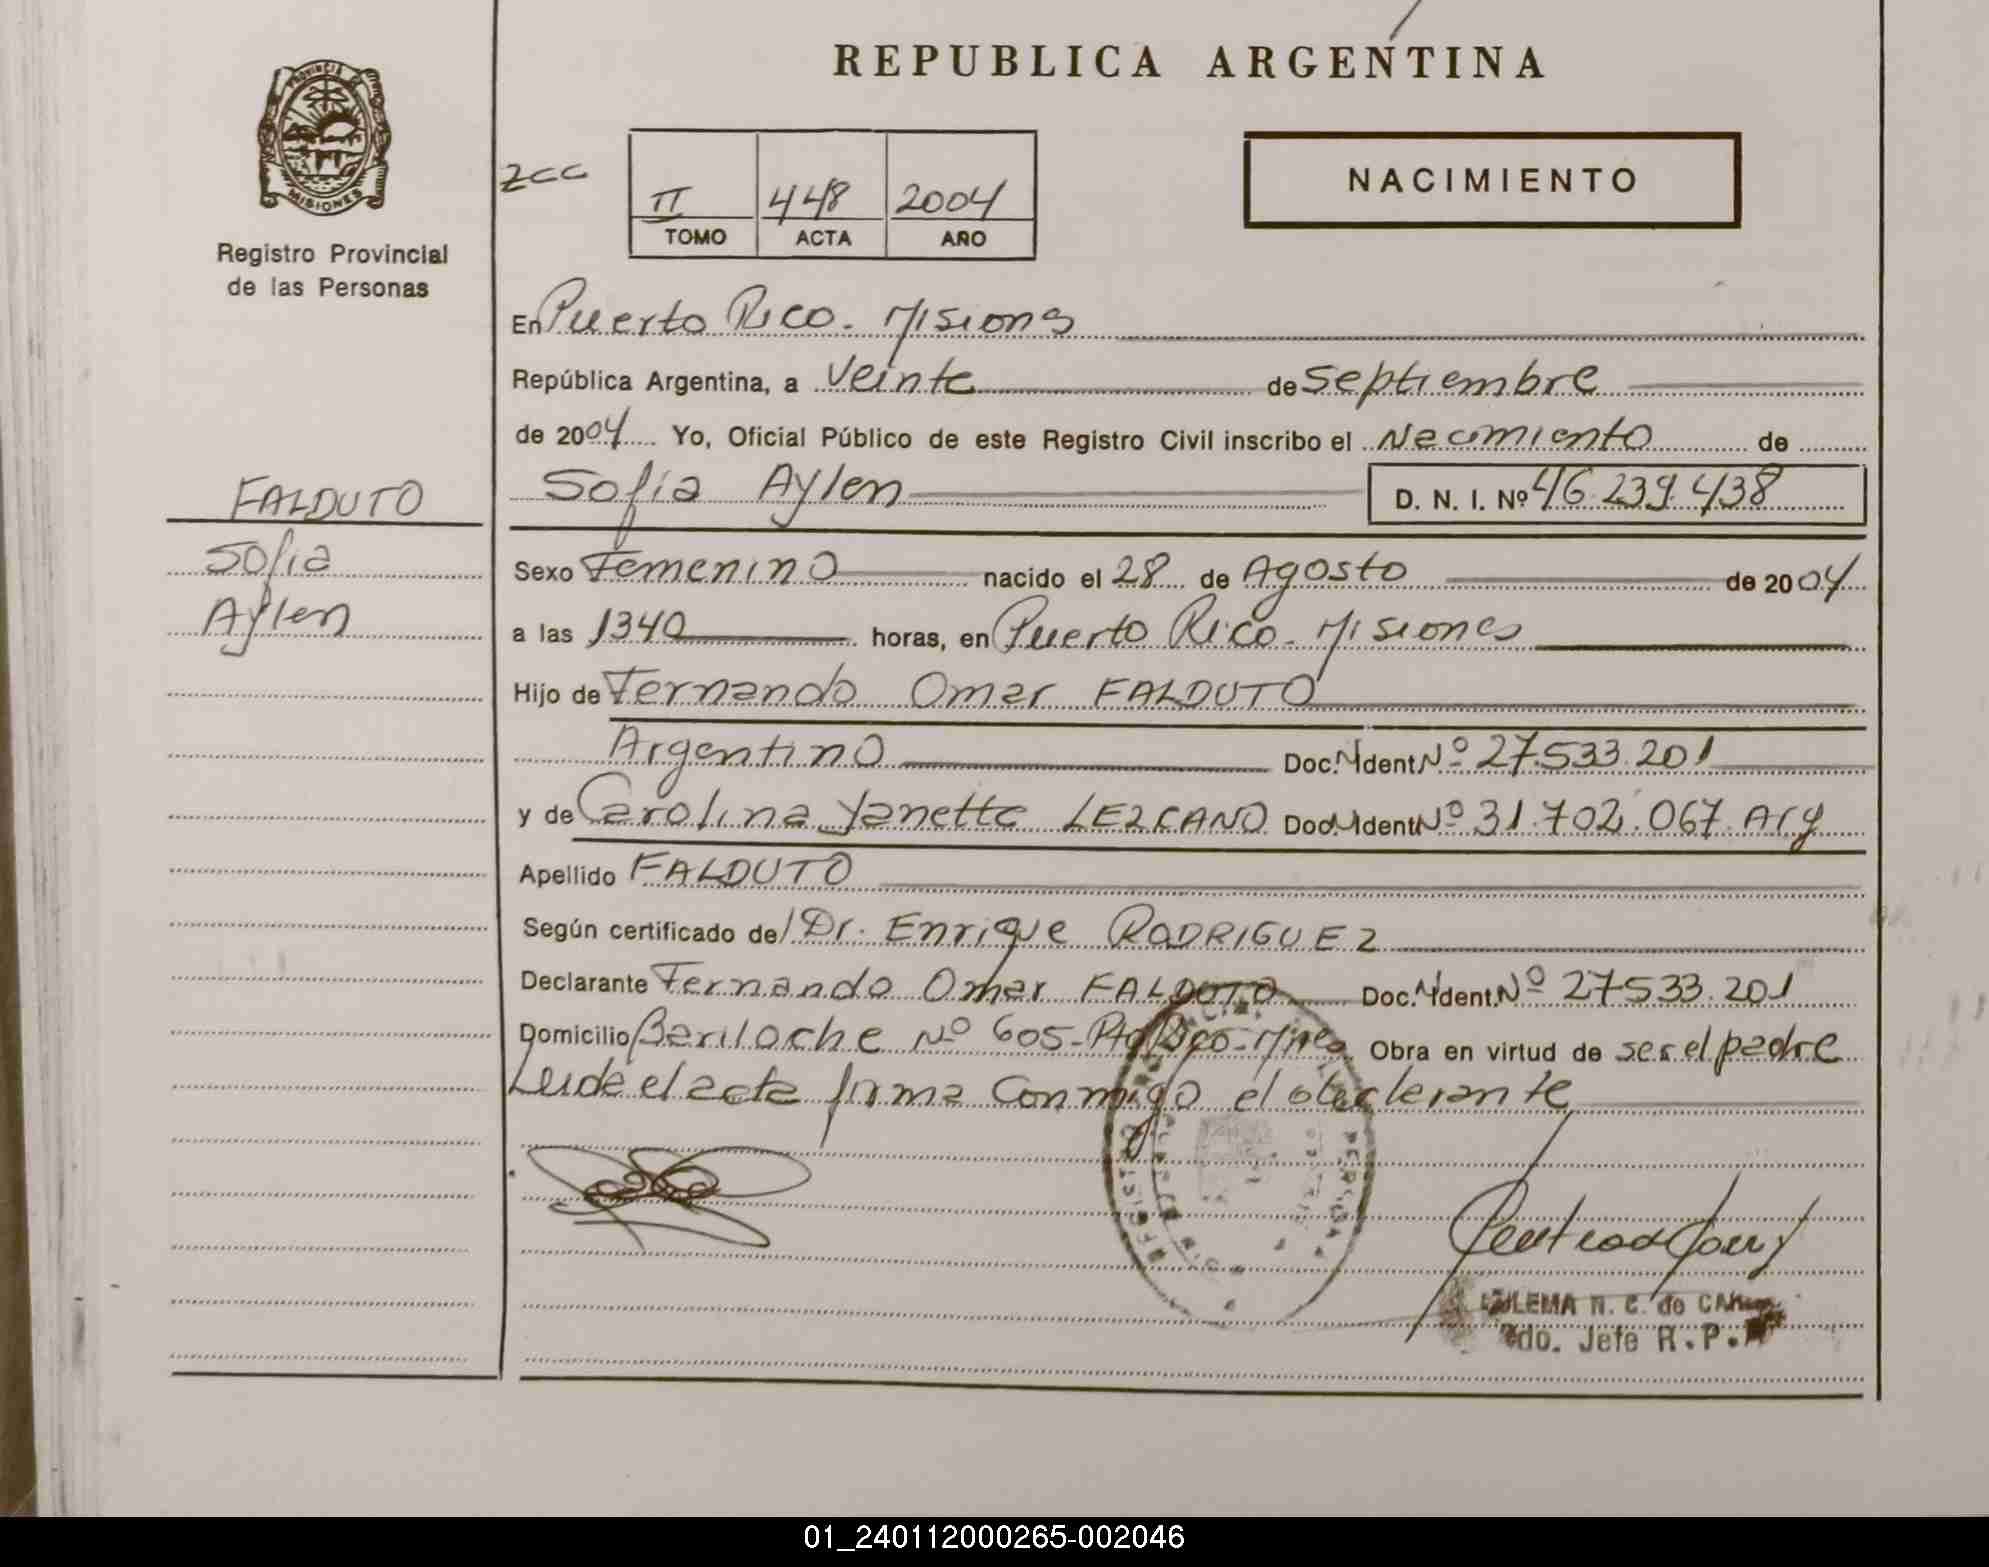 REPUBLICA ARGENTINA
PROVINCIA DE
MISIONES
Registro Provincial
de las Personas
zcc
II 448 2004
TOMO ACTA AÑO
NACIMIENTO
En Puerto Rico. Misiones
República Argentina, a veinte de septiembre
de 2004 Yo, Oficial Público de este Registro Civil inscribo el Nacimiento de
Sofia Aylen D. N. I. Nº 46.239.438
FALDUTO
Sofia
Aylen
Sexo Femenino nacido el 28 de Agosto de 2004
a las 1340 horas, en Puerto Rico. Misiones
Hijo de Fernando Omar FALDUTO
Argentino Doc. Ident. Nº 27.533.201
y de Carolina Yanette LEZCANO Doc. Ident. Nº 31.702.067 Arg
Apellido FALDUTO
Según certificado del Dr. Enrique RODRIGUEZ
Declarante Fernando Omar FALDUTO Doc. Ident. Nº 27533.201
Domicilio Bariloche Nº 605- Pto Rico- Mnes Obra en virtud de ser el padre
Leida el acta firma conmigo el declarante
ZULEMA N. C. de
2do. Jefe R. P.
01_240112000265-002046